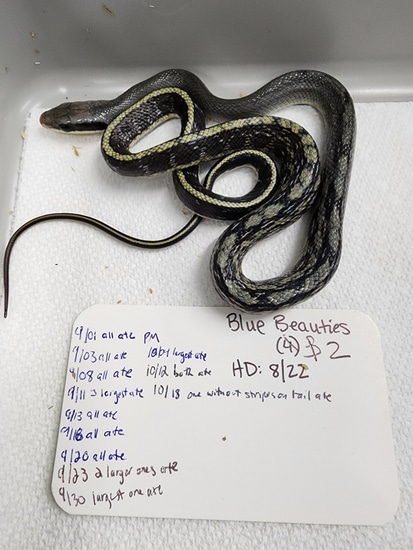 Blue Beauties
(4) $2
HD: 8/22
9/01 all ate PM
9/03 all ate
9/08 all ate
9/11 3 largest ate
9/13 all ate
9/18 all ate
9/20 all ate
9/23 2 larger ones ate
9/30 largest one ate
largest ate
10/12 both ate
10/18 one without stripes on tail ate